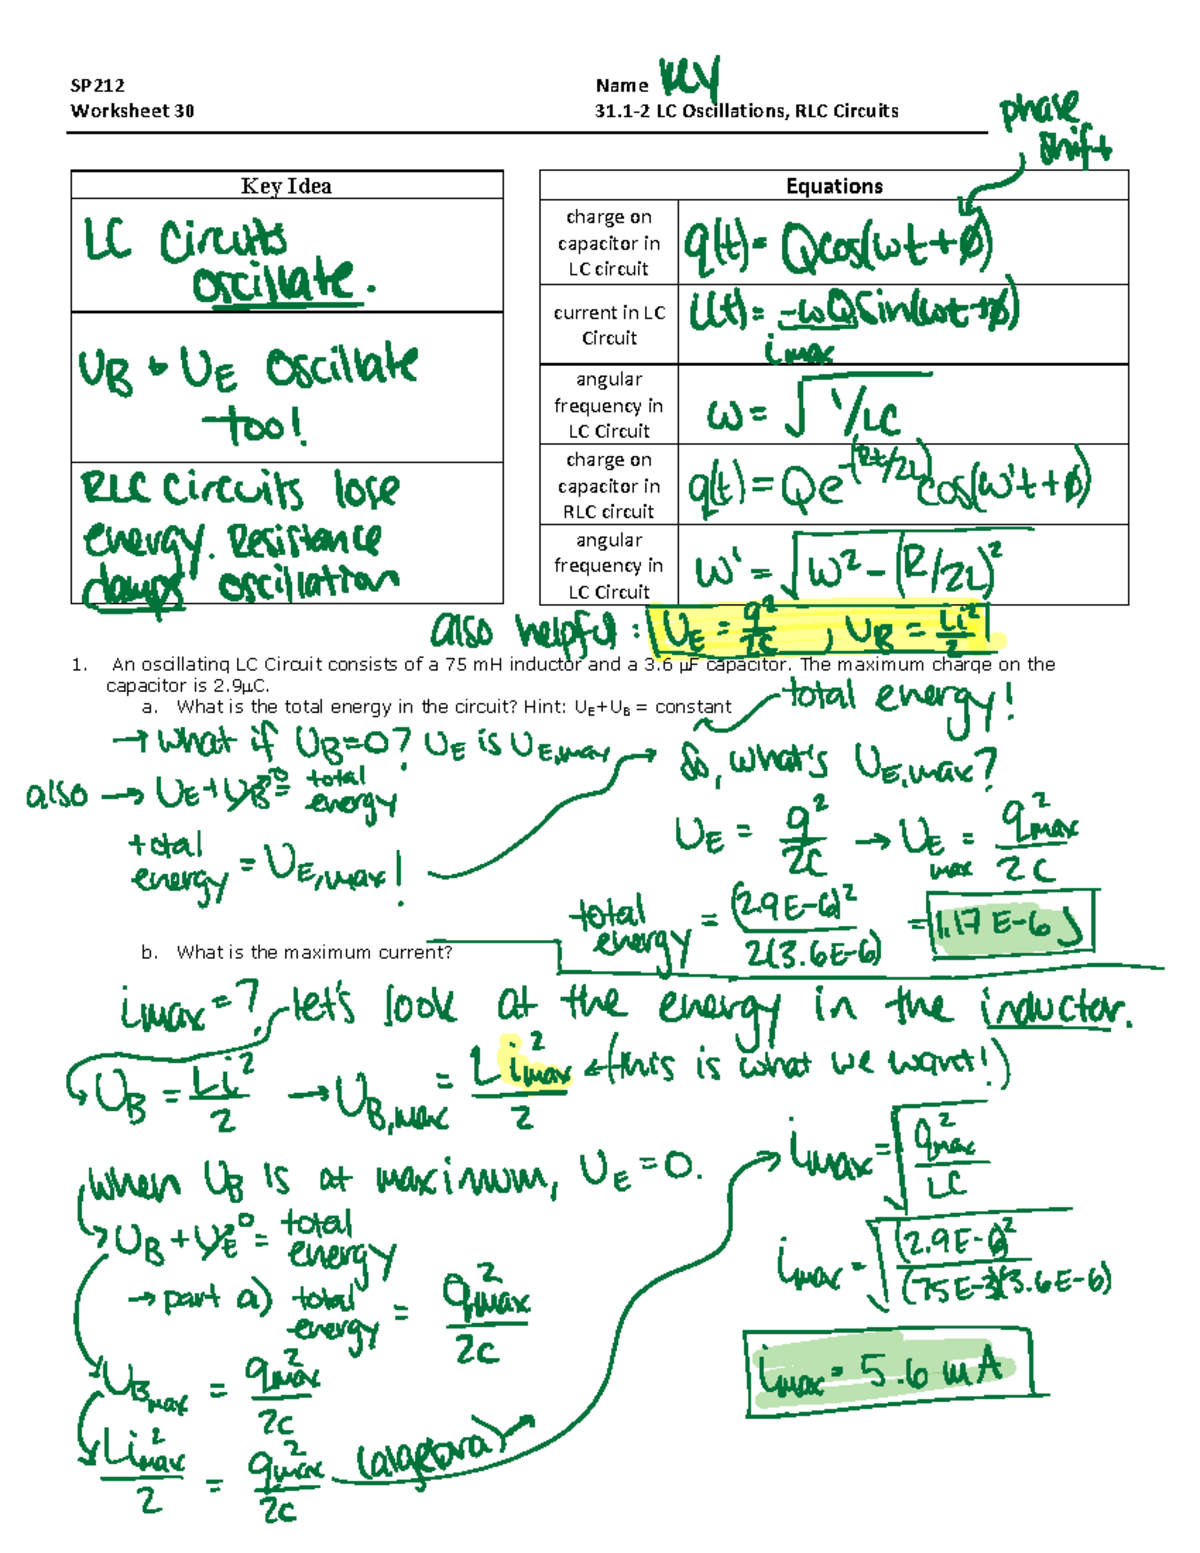 SP212
Name KEY
Worksheet 30
31.1-2 LC Oscillations, RLC Circuits
phase shift
Key Idea
LC Circuits
oscillate.
UB + UE Oscillate
too!
RLC Circuits lose
energy. Resistance
damps oscillation
Equations
charge on
capacitor in
LC circuit
q(t) = Qcos(ωt+Ø)
current in LC
Circuit
i(t) = -ωQSin(ωt+Ø)
imax
angular
frequency in
LC Circuit
ω = √1/LC
charge on
capacitor in
RLC circuit
q(t) = Qe^-(Rt/2L) cos(ω't+Ø)
angular
frequency in
LC Circuit
ω' = √ω² - (R/2L)²
also helpful: UE = q²/2C , UB = Li²/2
1. An oscillating LC Circuit consists of a 75 mH inductor and a 3.6 µF capacitor. The maximum charge on the
capacitor is 2.9µC.
a. What is the total energy in the circuit? Hint: UE+UB = constant
total energy!
→ what if UB=0? UE is UE,max
also → UE+UB⁰= total energy
total energy = UE,max!
So, what's UE,max?
UE = q²/2C → UE max = q²max/2C
total energy = (2.9E-6)²/2(3.6E-6) = 1.17 E-6 J
b. What is the maximum current?
imax=? let's look at the energy in the inductor.
UB = Li²/2 → UB,max = Li²max/2 ← (this is what we want!)
when UB is at maximum, UE = 0.
UB + UE⁰ = total energy
→ part a) total energy = q²max/2C
UBmax = q²max/2C
Li²max/2 = q²max/2C (algebra)
imax = √q²max/LC
imax = √(2.9E-6)²/(75E-3)(3.6E-6)
imax = 5.6 mA